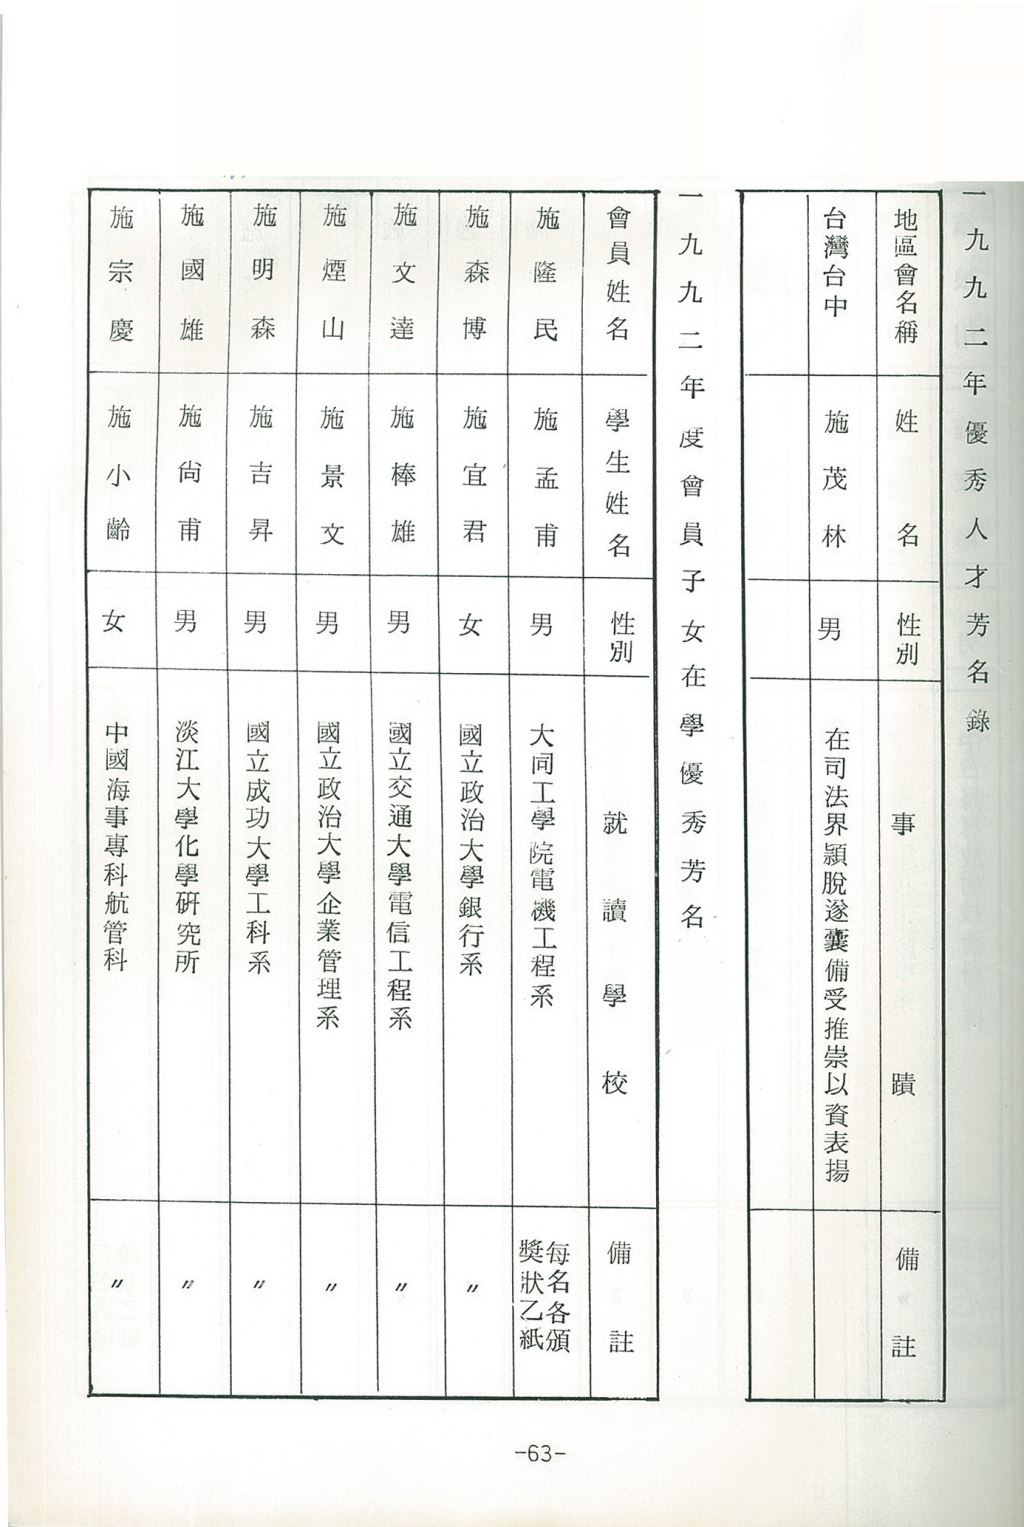 一九九二年優秀人才芳名錄
地區會名稱 姓名 性別 事蹟 備註
台灣台中 施茂林 男 在司法界穎脫遂囊備受推崇以資表揚
一九九二年度會員子女在學優秀芳名
會員姓名 學生姓名 性別 就讀學校 備註
施隆民 施孟甫 男 大同工學院電機工程系 每名各頒獎狀乙紙
施森博 施宜君 女 國立政治大學銀行系 〃
施文達 施棒雄 男 國立交通大學電信工程系 〃
施煙山 施景文 男 國立政治大學企業管理系 〃
施明森 施吉昇 男 國立成功大學工科系 〃
施國雄 施尙甫 男 淡江大學化學研究所 〃
施宗慶 施小齡 女 中國海事專科航管科 〃
-63-